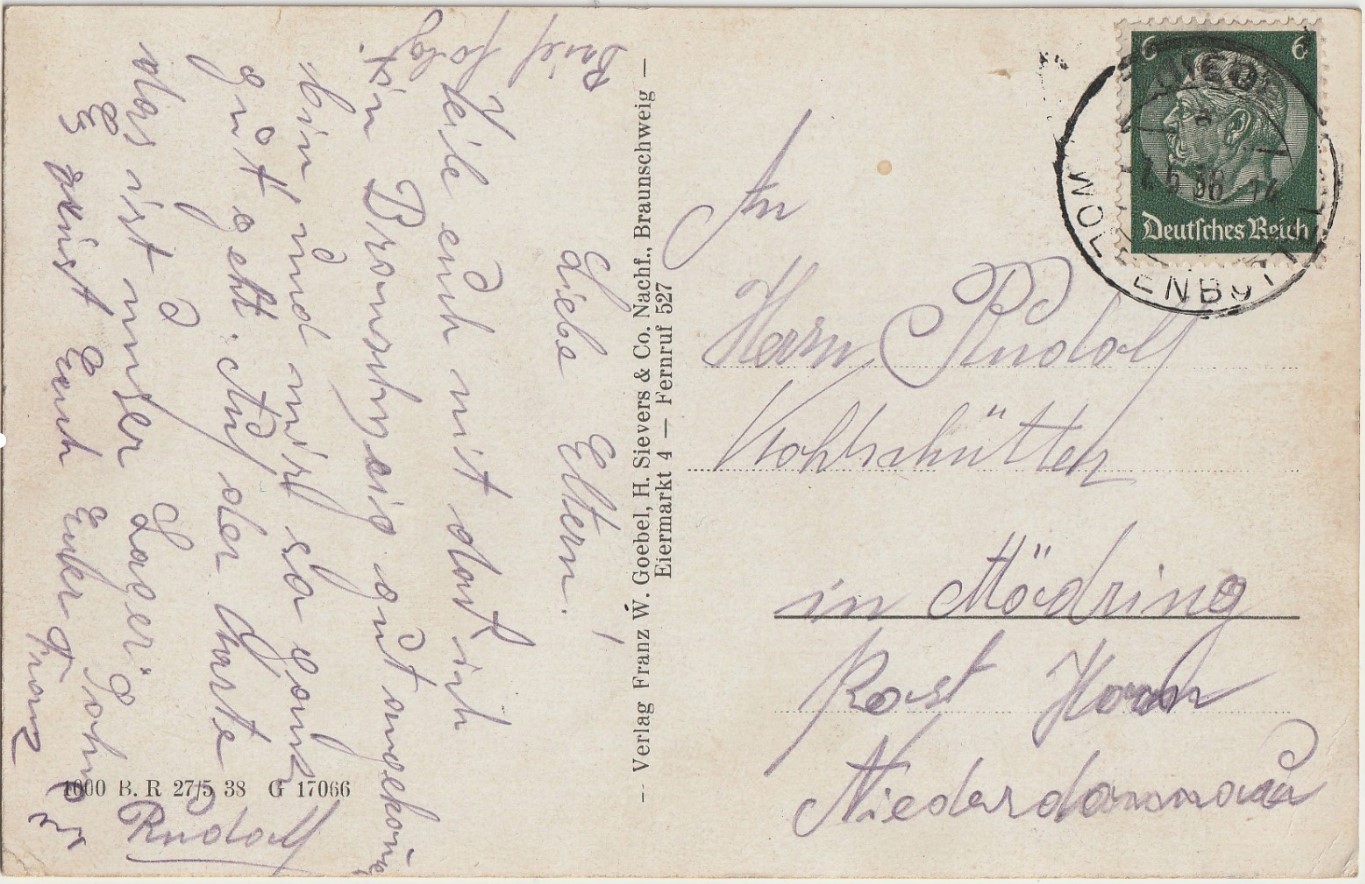 Liebe Eltern!
Teile euch mit das ich
in Braunschweig gut angekom
bin, und mir so ganz
gut geht. Auf der Karte
das ist unser Lager
Es grüst Euch Euer Sohn
Rudolf
Franz
Brief folgt.
1000 B. R 27/5 38 G 17066
— Verlag Franz W. Goebel, H. Sievers & Co. Nachf., Braunschweig —
Eiermarkt 4 — Fernruf 527
6 6
Deutsches Reich
WOLFENBÜTTEL
An
Herrn Rudolf
Kohlschütter
in Mödring
Post Horn
Niederdonnau